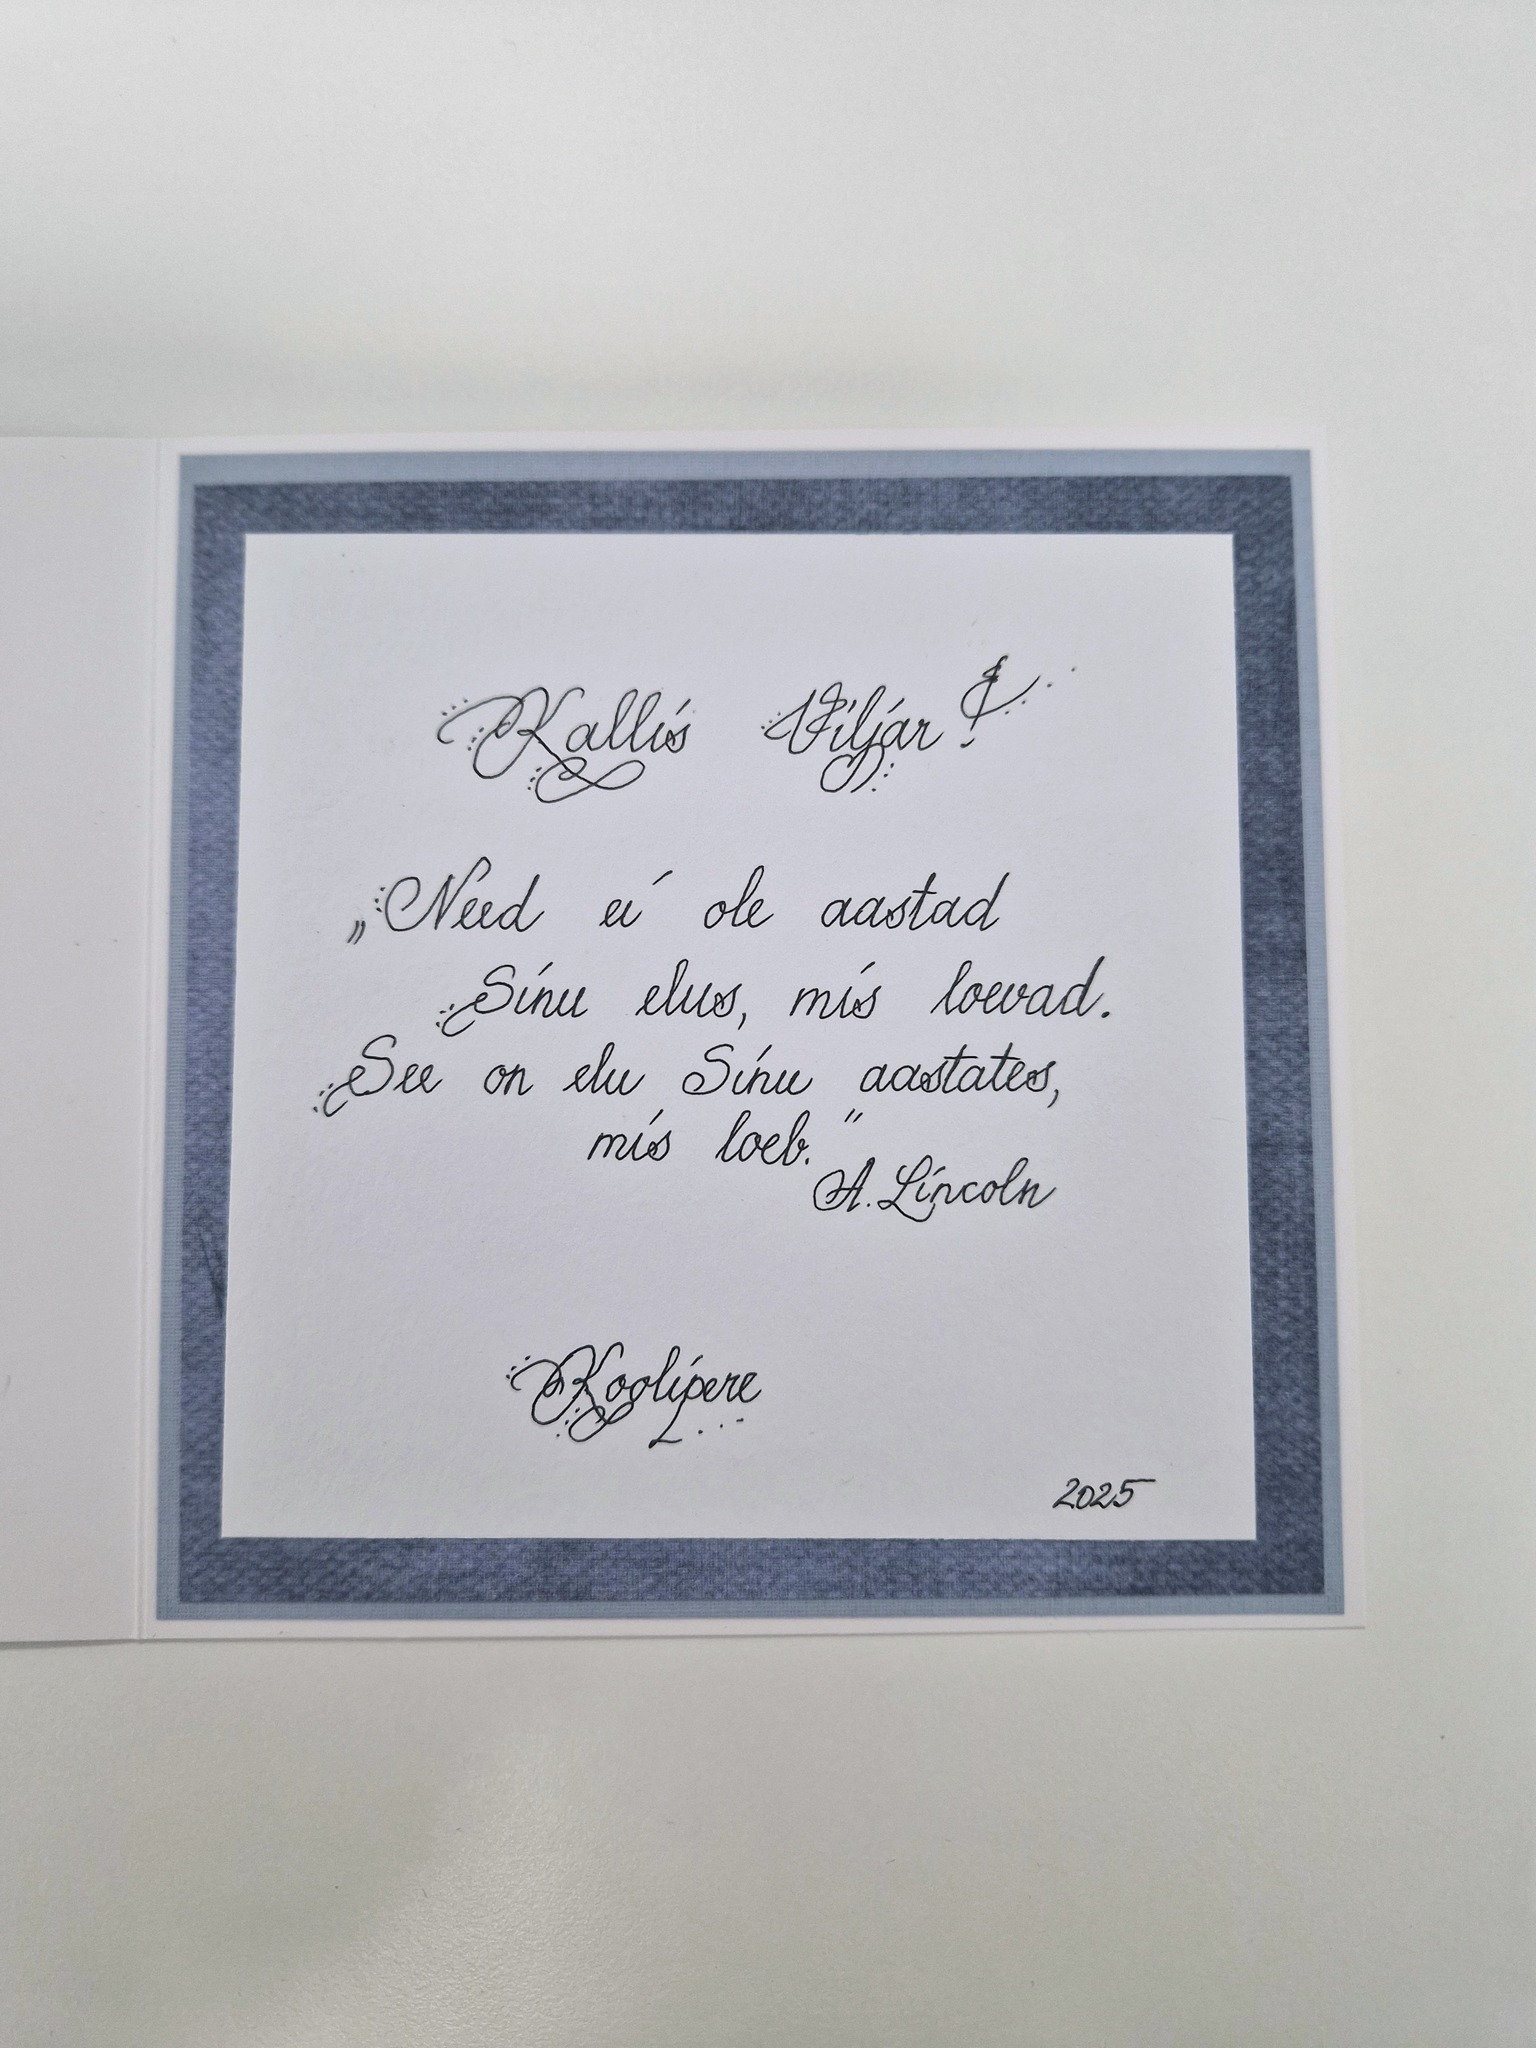 Kallis Viljar!
„Need ei ole aastad
Sinu elus, mis loevad.
See on elu Sinu aastates,
mis loeb.”
A. Lincoln
Koolipere
2025